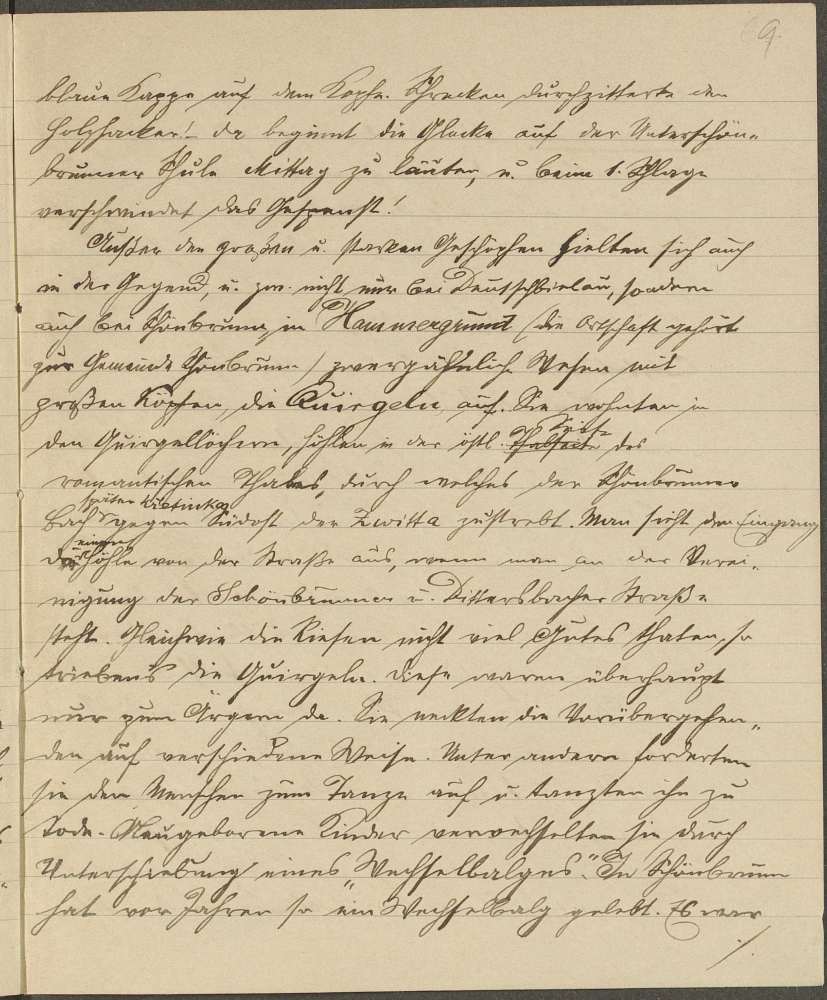 9.
blaue Kappe auf dem Kopfe. Schrecken durchzitterte den
Holzhacker! – da beginnt die Glocke auf der Unterschön-
brunner Schule Mittag zu läuten, u. beim 1. Schlage
verschwindet das Gespenst!
Außer den großen u. starken Geschöpfen hielten sich auch
in der Gegend, u. zw. nicht nur bei Deutschbielau, sondern
auch bei Schönbrunn, in Hammergrund (die Ortschaft gehört
zur Gemeinde Schönbrunn) zwergähnliche Wesen mit
großen Köpfen, die Quirgeln, auf. Sie wohnten in
den Quirgellöchern, Höhlen in der östl. Thalseite des
romantischen Thales, durch welches der Schönbrunner
später Křetinka
Bach gegen Südost der Zwitta zustrebt. Man sieht den Eingang
einer
Höhle von der Straße aus, wenn man an der Verei-
nigung der Schönbrunner u. Dittersbacher Straße
steht. Gleichwie die Riesen nicht viel Gutes thaten, so
trieben's die Quirgeln. Diese waren überhaupt
nur zum Ärgern da. Sie neckten die Vorübergehen-
den auf verschiedene Weise. Unter andern forderten
sie den Menschen zum Tanze auf u. tanzten ihn zu
Tode. Neugeborene Kinder verwechselten sie durch
Unterschiebung eines „Wechselbalges“. In Schönbrunn
hat vor Jahren so ein Wechselbalg gelebt. Es war
./.